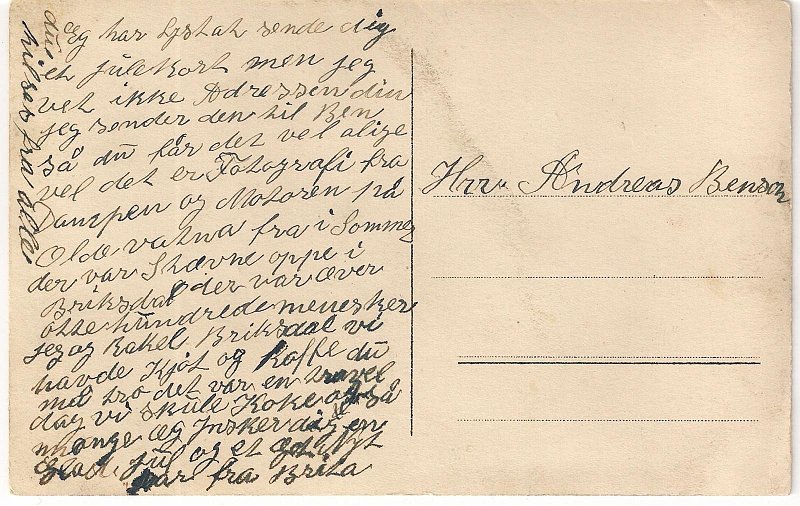 Eg har Lyst at sende dig
et julekort men jeg
vet ikke Adressen din
jeg sender den til Ben
så du får det vel alige
vel det er Fotografi fra
Dampen og Motoren på
Oldevatna fra i Sommer
der var Stævne oppe i
Briksdal der var æver
otte hundrede menesker
jeg og Rakel Briksdal vi
havde Kjøt og Kaffe du
må tro det var en travel
dag vi skule Koke så
mange æg Jnsker dig en
Glad jul og et
år fra Brita
du
hilses fra alle
Hrr. Andreas Benson